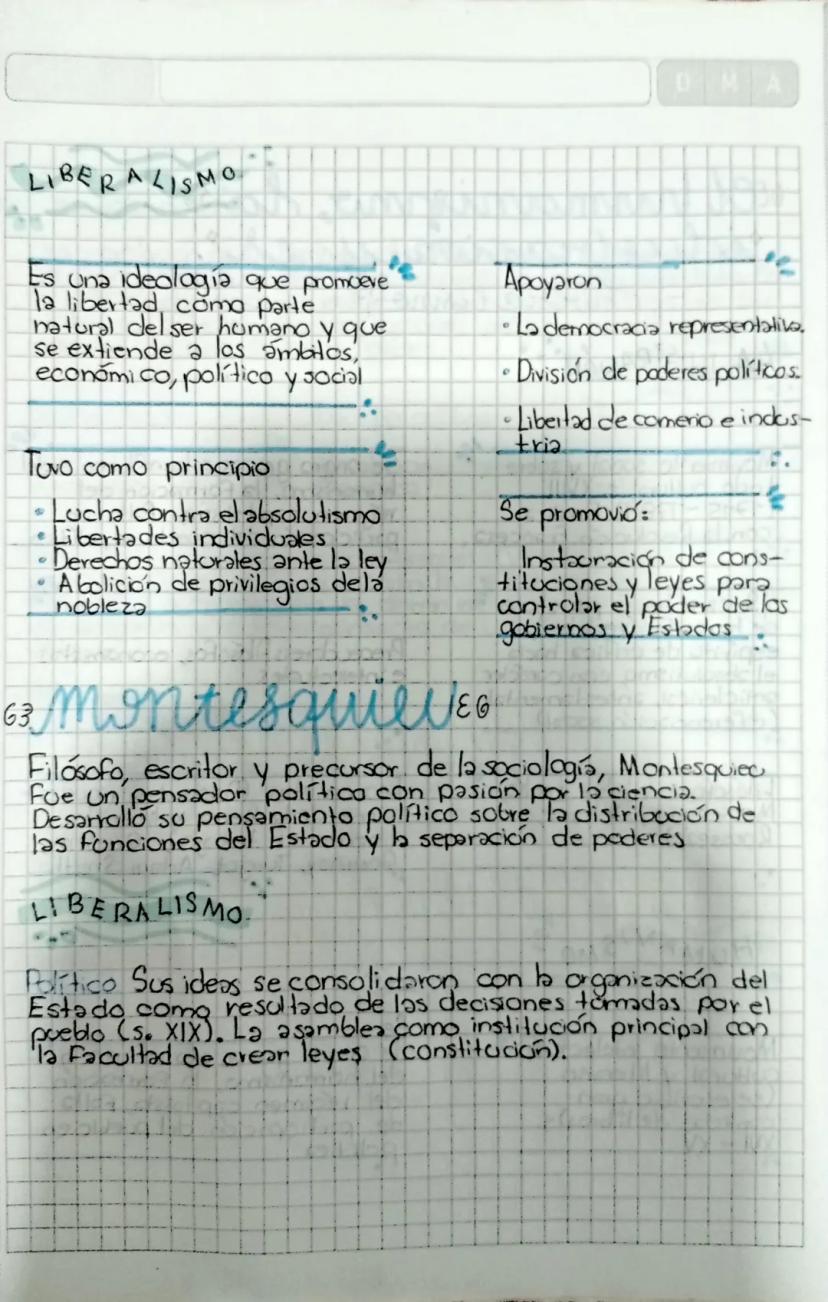 D M A
LIBERALISMO
Es una ideología que promueve
la libertad como parte
natural del ser humano y que
se extiende a los ámbitos,
económico, político y social
Apoyaron
• La democracia representativa.
• División de poderes políticos.
• Libertad de comerio e indus-
tria
Tuvo como principio
• Lucha contra el absolutismo
• Libertades individuales
• Derechos naturales ante la ley
• Abolición de privilegios dela
nobleza
Se promovió:
Instauración de cons-
tituciones y leyes para
controlar el poder de los
gobiernos y Estados
Montesquieu
Filósofo, escritor y precursor de la sociología, Montesquieu
Fue un pensador político con pasión por la ciencia.
Desarrolló su pensamiento político sobre la distribución de
las funciones del Estado y la separación de poderes
LIBERALISMO.
Político Sus ideas se consolidaron con la organización del
Estado como resultado de las decisiones tomadas por el
pueblo (s. XIX). La asamblea como institución principal con
la Facultad de crear leyes (constitución).